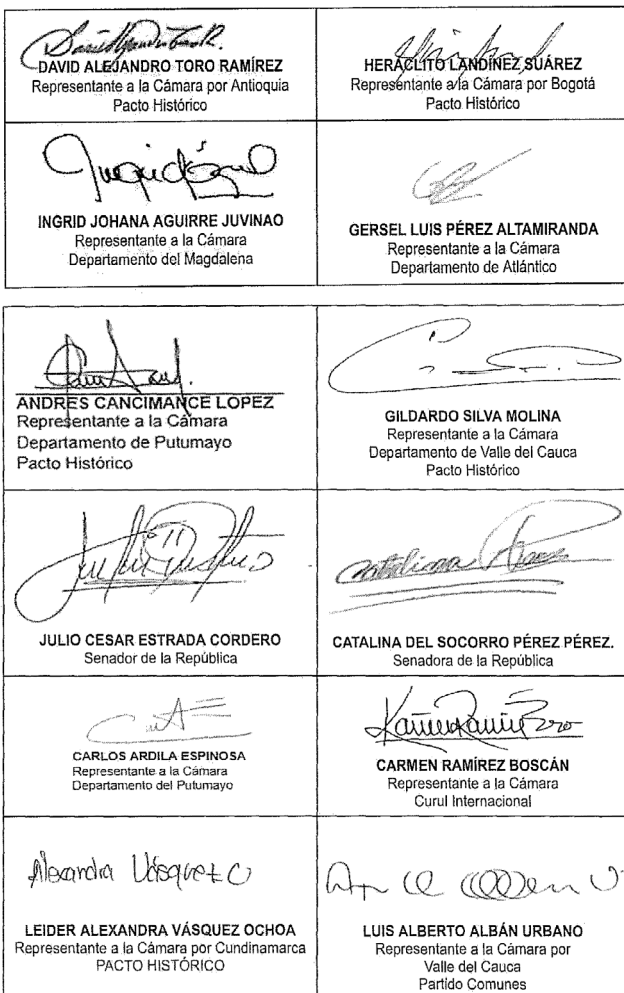 DAVID ALEJANDRO TORO RAMÍREZ
Representante a la Cámara por Antioquia
Pacto Histórico
HERÁCLITO LANDÍNEZ SUÁREZ
Representante a la Cámara por Bogotá
Pacto Histórico
INGRID JOHANA AGUIRRE JUVINAO
Representante a la Cámara
Departamento del Magdalena
GERSEL LUIS PÉREZ ALTAMIRANDA
Representante a la Cámara
Departamento de Atlántico
ANDRES CANCIMANCE LOPEZ
Representante a la Cámara
Departamento de Putumayo
Pacto Histórico
GILDARDO SILVA MOLINA
Representante a la Cámara
Departamento de Valle del Cauca
Pacto Histórico
JULIO CESAR ESTRADA CORDERO
Senador de la República
catalina Perez
CATALINA DEL SOCORRO PÉREZ PÉREZ.
Senadora de la República
CARLOS ARDILA ESPINOSA
Representante a la Cámara
Departamento del Putumayo
CARMEN RAMÍREZ BOSCÁN
Representante a la Cámara
Curul Internacional
Alexandra Vásquez O
LEIDER ALEXANDRA VÁSQUEZ OCHOA
Representante a la Cámara por Cundinamarca
PACTO HISTÓRICO
LUIS ALBERTO ALBÁN URBANO
Representante a la Cámara por
Valle del Cauca
Partido Comunes